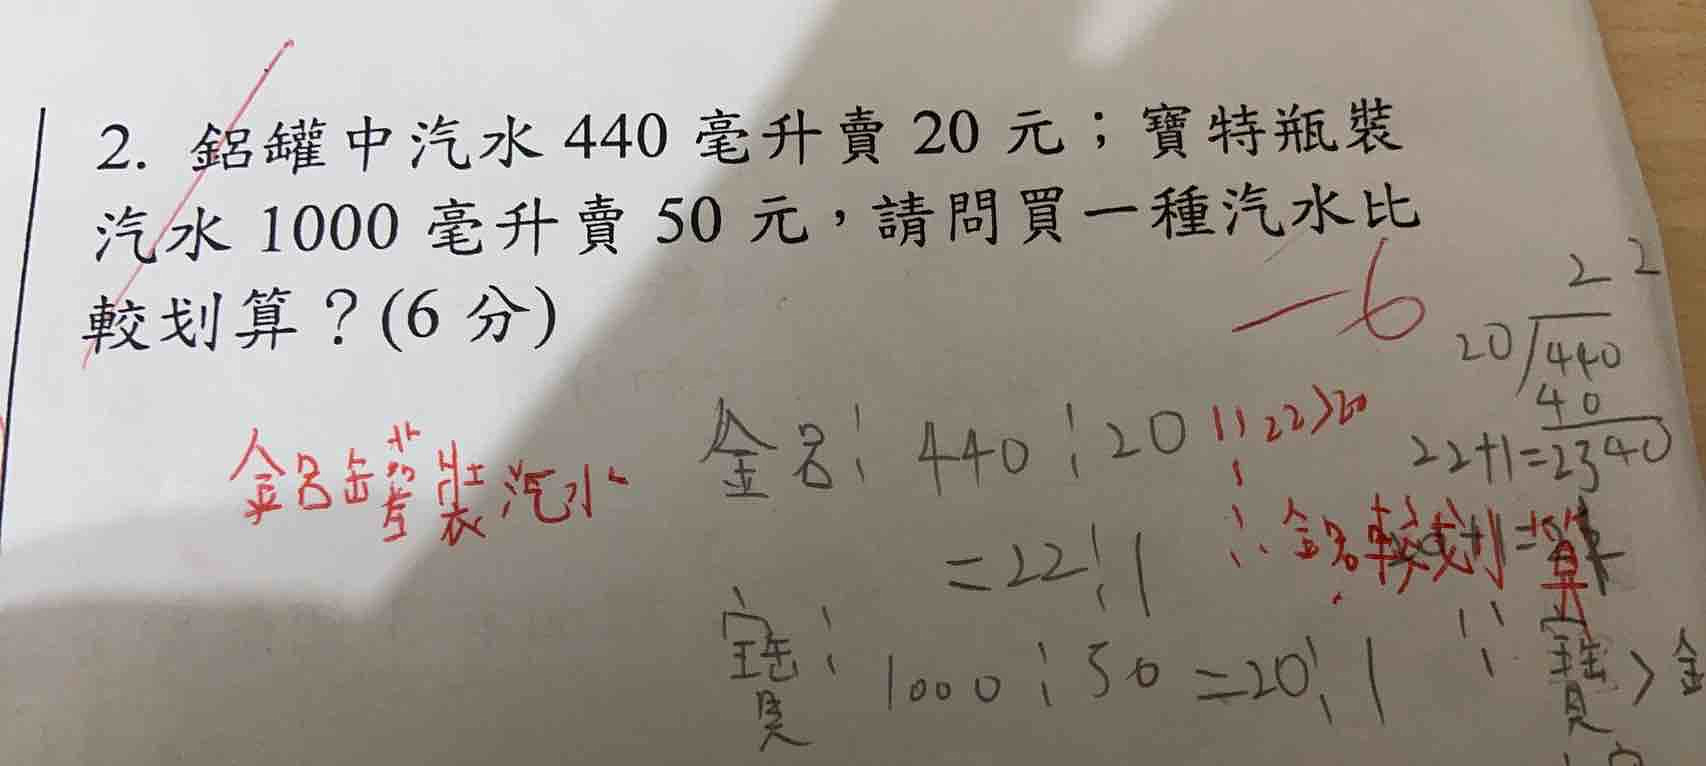 2. 鋁罐中汽水 440 毫升賣 20 元；寶特瓶裝
汽水 1000 毫升賣 50 元，請問買一種汽水比
較划算？(6 分)
-6
鋁罐裝汽水
鋁：440：20
=22：1
寶：1000：50=20：1
∵22>20
∴鋁較划算
22
20
440
40
40
22+1=23
∵寶>鋁